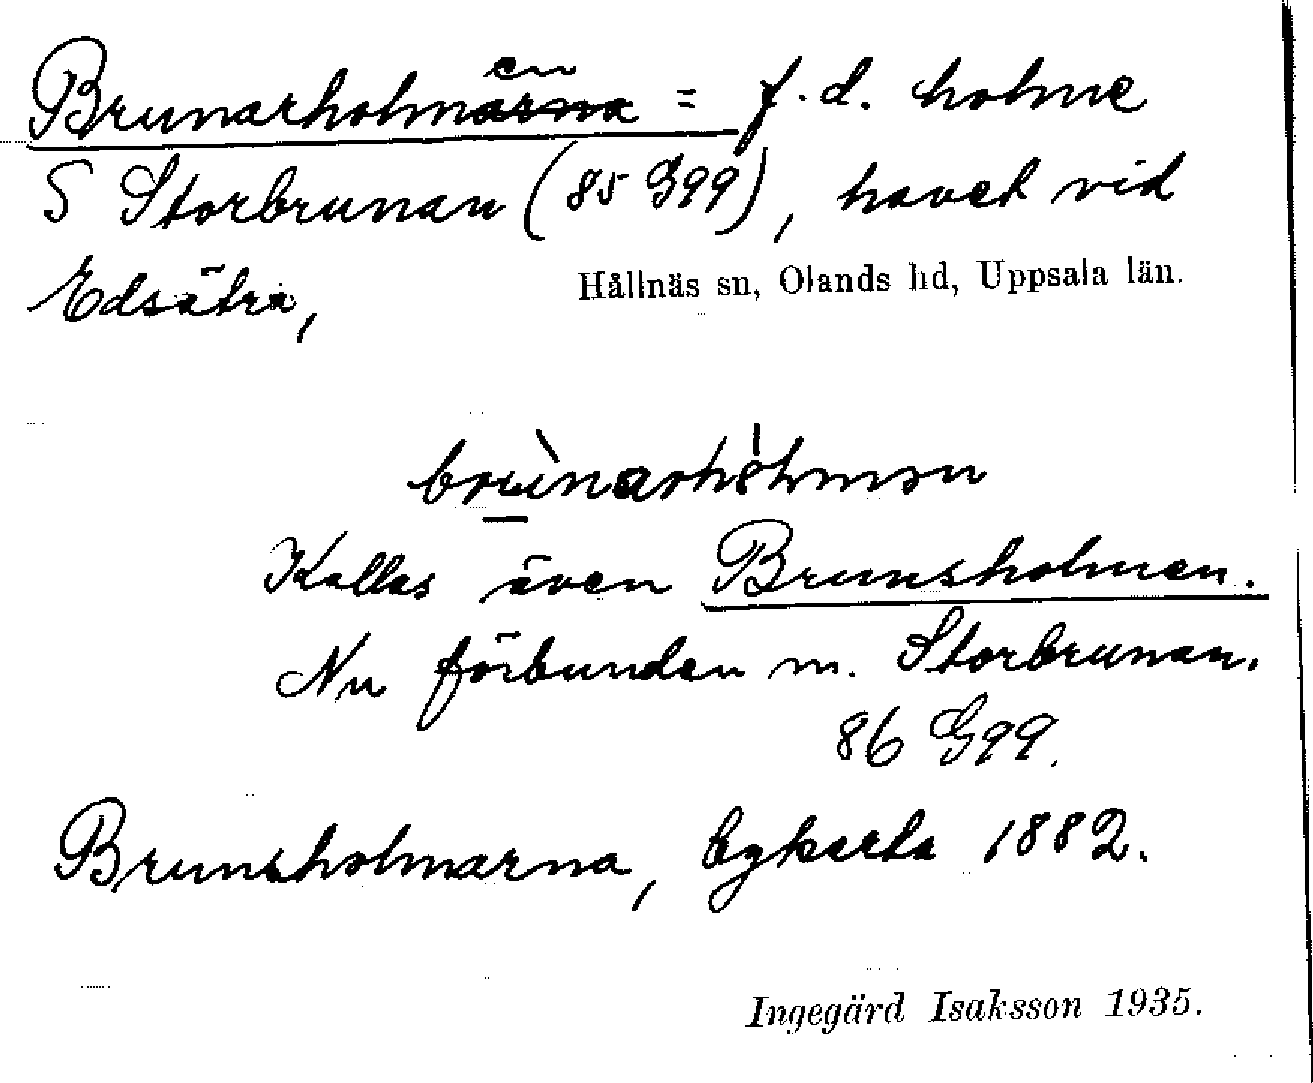 Brunarholmarna en = f.d. holme
S Storbrunan (85 G99), havet vid
Edsätra, Hållnäs sn, Olands hd, Uppsala län.
brùnarhólmən
Kallas även Brunsholmen.
Nu förbunden m. Storbrunan.
86 G99.
Brunsholmarna, bykarta 1882.
Ingegärd Isaksson 1935.